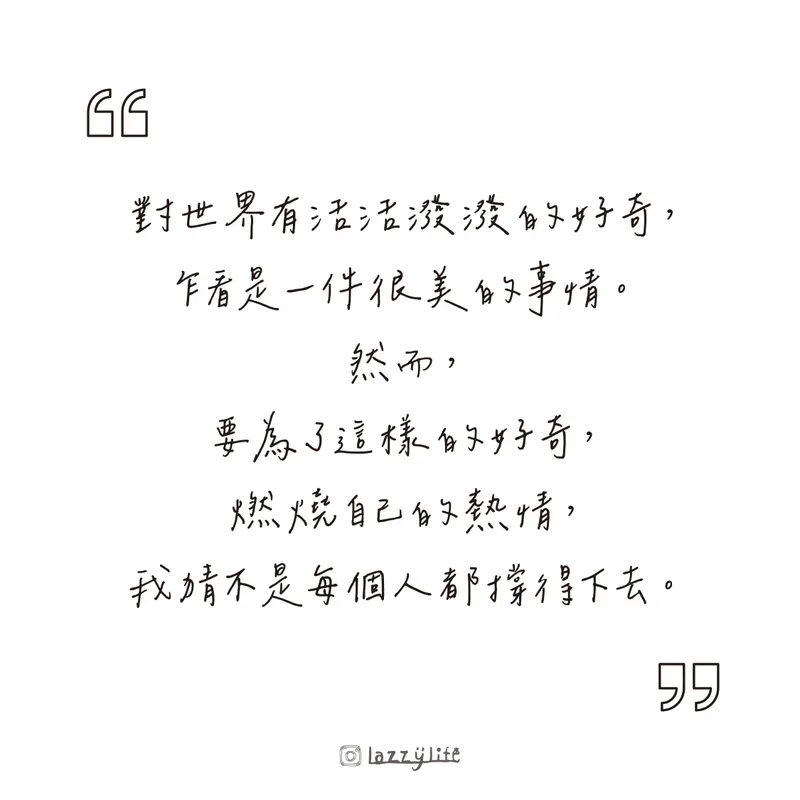 對世界有活活潑潑的好奇，
乍看是一件很美的事情。
然而，
要為了這樣的好奇，
燃燒自己的熱情，
我猜不是每個人都撐得下去。
lazzylife